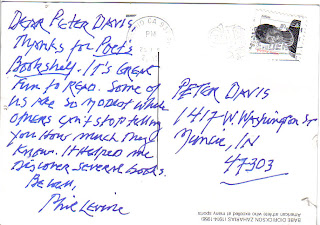 DEAR PETER DAVIS,
Thanks for Poet's
Bookshelf. It's great
fun to read. Some of
us are so modest while
others can't stop telling
you how much they
know. It helped me
discover several books.
Be well,
Phil Levine
PETER DAVIS
1417 W. Washington St
Muncie, IN
47303
PM
BABE DIDRIKSON ZAHARIAS (1914-1956)
American athlete who excelled in many sports